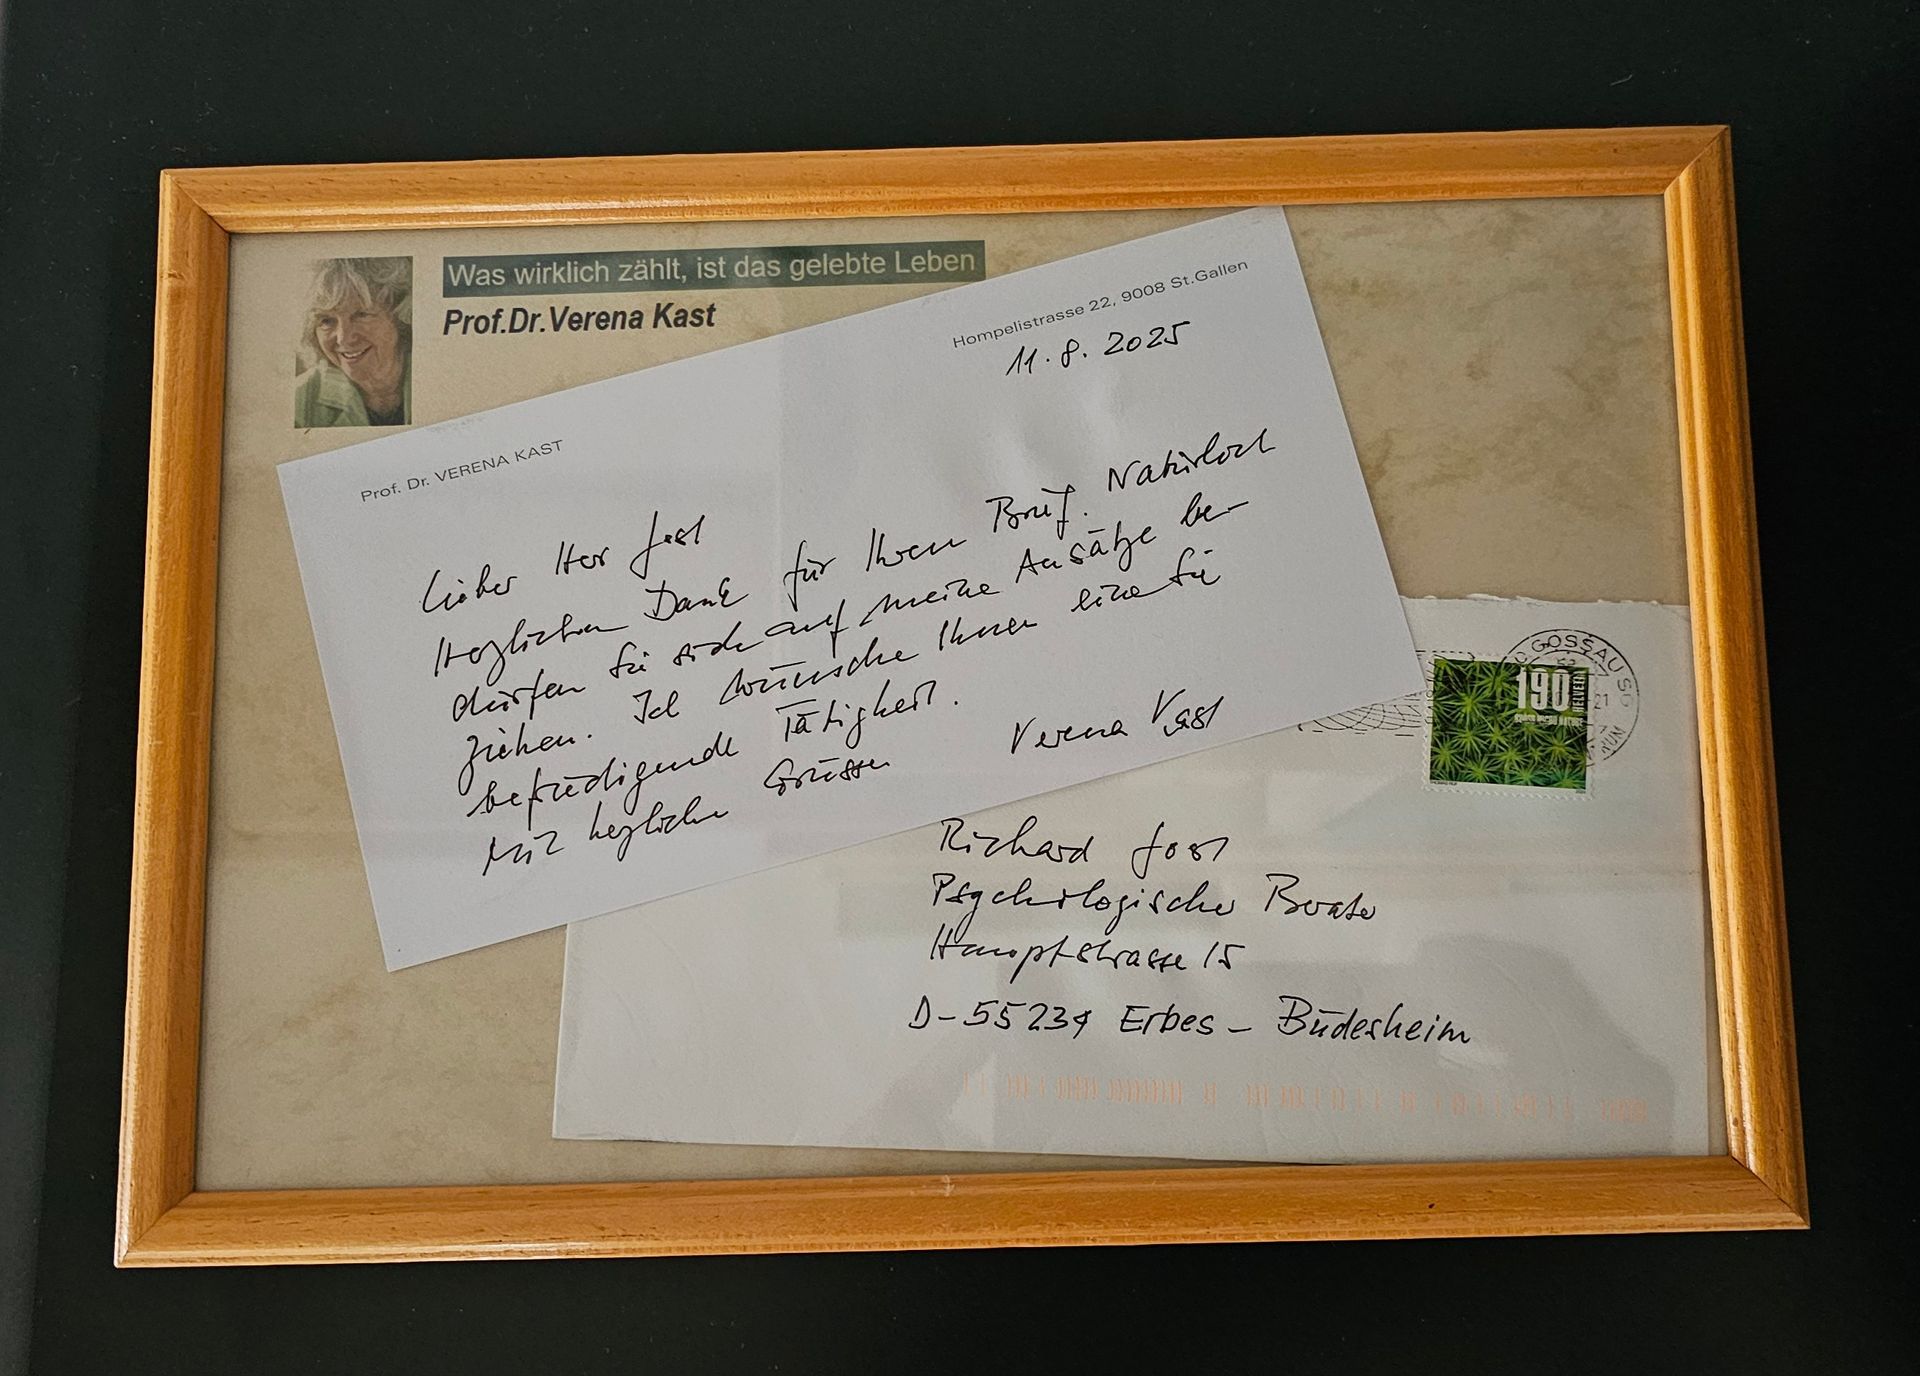 Was wirklich zählt, ist das gelebte Leben
Prof.Dr.Verena Kast
Prof. Dr. VERENA KAST
Hompelistrasse 22, 9008 St.Gallen
11.8.2025
Lieber Herr Jost
Herzlichen Dank für Ihren Brief. Natürlich
dürfen Sie sich auf meine Ansätze be-
ziehen. Ich wünsche Ihnen eine Sie
befriedigende Tätigkeit.
Mit herzlichen Grüssen
Verena Kast
GOSSAU SG
190
HELVETIA
Richard Jost
Psychologischer Berater
Hauptstrasse 15
D-55234 Erbes-Büdesheim